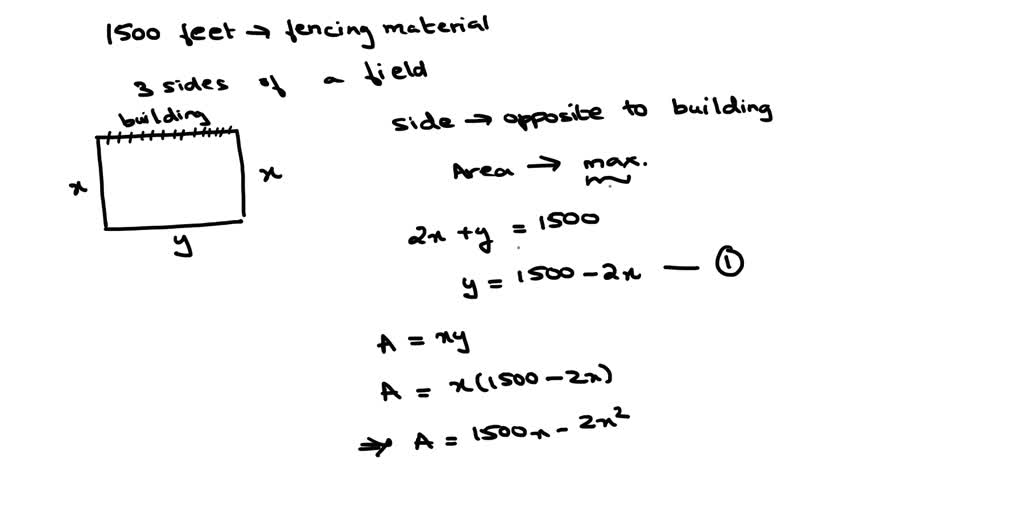 1500 feet → fencing material
3 sides of a field
building
side → opposite to building
x
x
Area → max.
y
2x + y = 1500
y = 1500 - 2x — ①
A = xy
A = x(1500 - 2x)
⇒ A = 1500x - 2x²